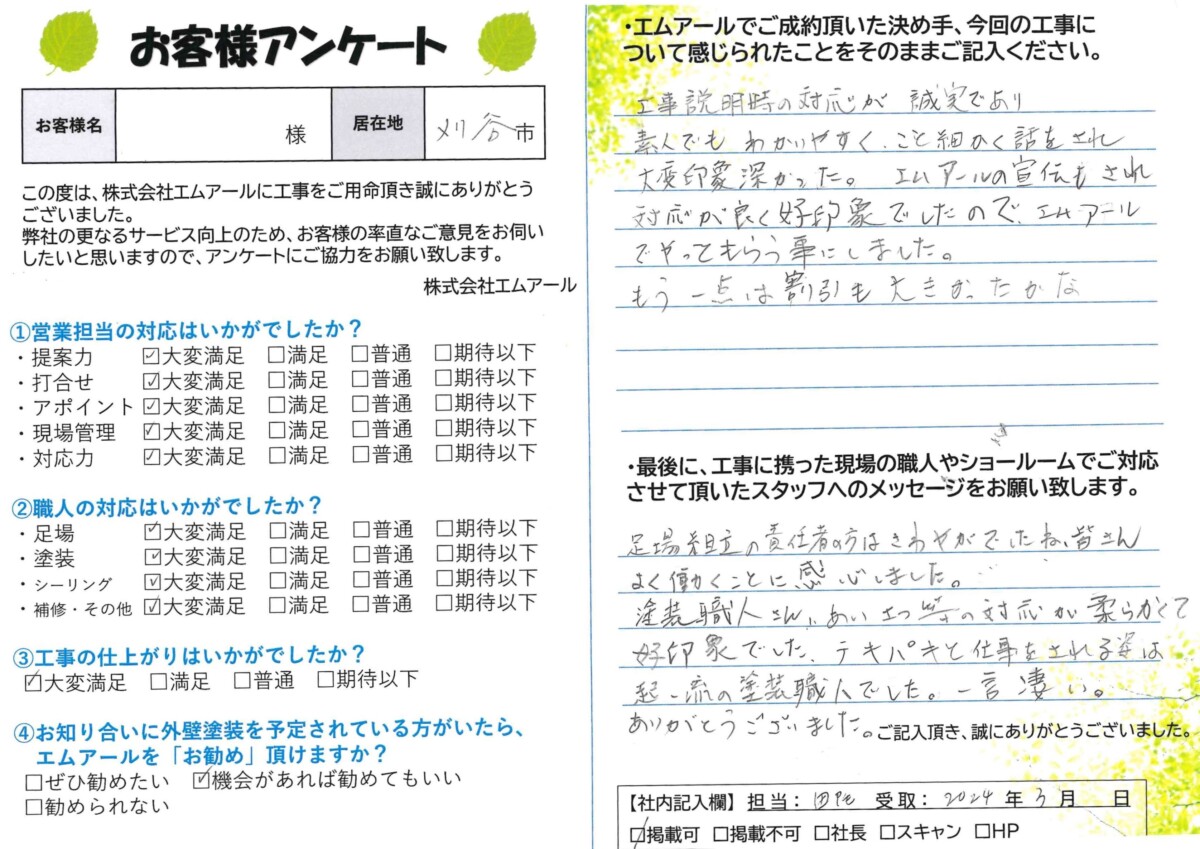 お客様アンケート
お客様名 様 居在地 刈谷市
この度は、株式会社エムアールに工事をご用命頂き誠にありがとう
ございました。
弊社の更なるサービス向上のため、お客様の率直なご意見をお伺い
したいと思いますので、アンケートにご協力をお願い致します。
株式会社エムアール
①営業担当の対応はいかがでしたか？
・提案力 ☑大変満足 ☐満足 ☐普通 ☐期待以下
・打合せ ☑大変満足 ☐満足 ☐普通 ☐期待以下
・アポイント ☑大変満足 ☐満足 ☐普通 ☐期待以下
・現場管理 ☑大変満足 ☐満足 ☐普通 ☐期待以下
・対応力 ☑大変満足 ☐満足 ☐普通 ☐期待以下
②職人の対応はいかがでしたか？
・足場 ☑大変満足 ☐満足 ☐普通 ☐期待以下
・塗装 ☑大変満足 ☐満足 ☐普通 ☐期待以下
・シーリング ☑大変満足 ☐満足 ☐普通 ☐期待以下
・補修・その他 ☑大変満足 ☐満足 ☐普通 ☐期待以下
③工事の仕上がりはいかがでしたか？
☑大変満足 ☐満足 ☐普通 ☐期待以下
④お知り合いに外壁塗装を予定されている方がいたら、
エムアールを「お勧め」頂けますか？
☐ぜひ勧めたい ☑機会があれば勧めてもいい
☐勧められない
・エムアールでご成約頂いた決め手、今回の工事に
ついて感じられたことをそのままご記入ください。
工事説明時の対応が 誠実であり
素人でもわかりやすく、こと細かく話をされ
大変印象深かった。 エムアールの宣伝もされ
対応が良く好印象でしたので、エムアール
でやってもらう事にしました。
もう一点は割引も大きかったかな
・最後に、工事に携った現場の職人やショールームでご対応
させて頂いたスタッフへのメッセージをお願い致します。
足場組立の責任者の方はさわやかでしたね、皆さん
よく働くことに感心しました。
塗装職人さん、あいさつ等の対応が柔らかくて
好印象でした、テキパキと仕事をされる姿は
超一流の塗装職人でした。一言凄い。
ありがとうございました。
ご記入頂き、誠にありがとうございました。
【社内記入欄】 担当： 受取：2024年3月 日
☑掲載可 ☐掲載不可 ☐社長 ☐スキャン ☐HP